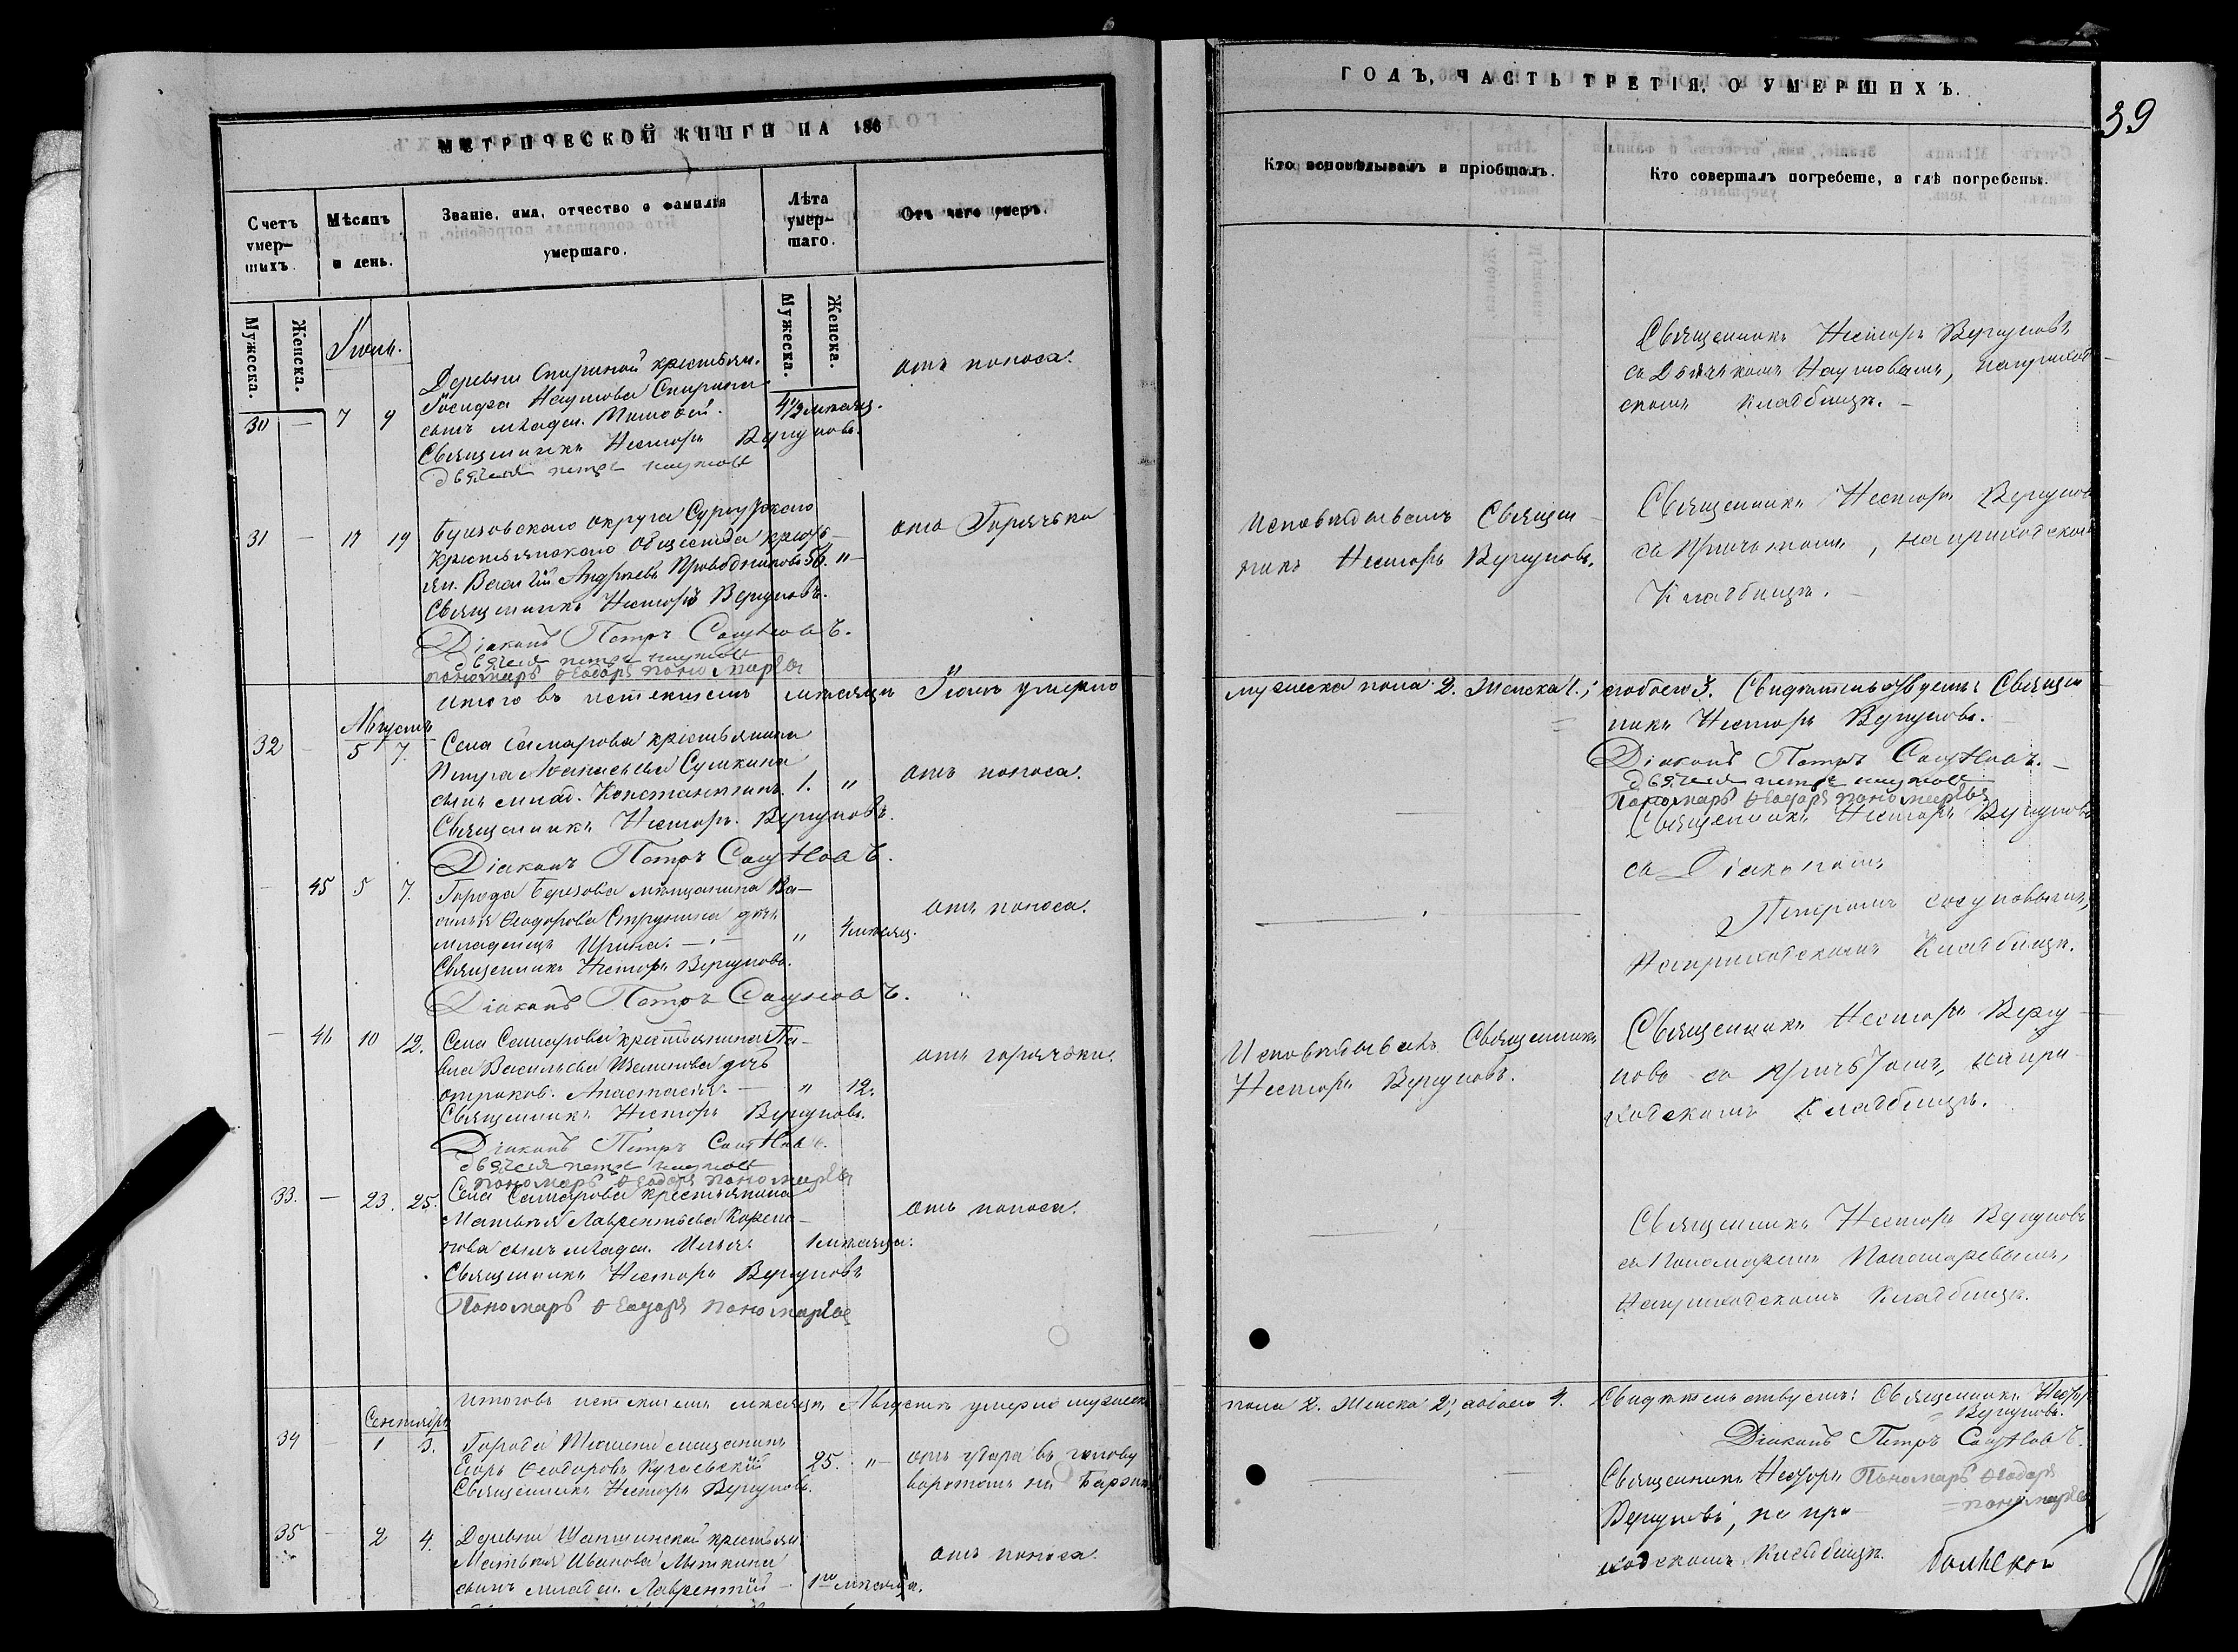 МЕТРИЧЕСКОЙ КНИГИ НА 186
Счетъ умер-
шихъ.
Мѣсяцъ
и день.
Званіе, имя, отчество и фамилія
умершаго.
Лѣта
умер-
шаго.
Отъ чего умеръ.
Мужеска.
Женска.
Мужеска.
Женска.
Іюль.
30 — 7 9
Деревни Спириной крестьян.
Іосифа Наумова Спирина
сынъ младен. Тимофей. 4½ мѣсяц.
отъ поноса.
Священникъ Несторъ Вергуновъ.
дьячекъ петръ наумовъ
31 — 17 19
Березовскаго округа Сургутскаго
Крестьянскаго общества крест-
ян. Василій Андреевъ Проводниковъ 56. "
отъ Горячьки
Священникъ Несторъ Вергуновъ.
Діаконъ Петръ Сосуновъ.
дьячекъ петръ наумовъ
пономарь Ѳеодоръ пономаревъ
итого въ истекшемъ мѣсяцѣ Іюлѣ умерло
Августъ
32 — 5 7.
Села Самарова крестьянина
Петра Аѳанасьева Сумкина
сынъ млад. Константинъ. 1. "
отъ поноса.
Священникъ Несторъ Вергуновъ.
Діаконъ Петръ Сосуновъ.
— 45 5 7.
Города Березова мѣщанина Ва-
силья Ѳеодорова Струнина дочь
младенецъ Ирина. — " 4 мѣсяц.
отъ поноса.
Священникъ Несторъ Вергуновъ.
Діаконъ Петръ Сосуновъ.
— 46 10 12.
Села Самарова крестьянина Па-
вла Васильева дочь
отроков. Анастасія. — " 12.
отъ горячьки.
Священникъ Несторъ Вергуновъ.
Діаконъ Петръ Сосуновъ.
дьячекъ петръ наумовъ
пономарь Ѳеодоръ пономаревъ
33. — 23. 25.
Села Самарова крестьянина
Матвѣя Лаврентьева Корепа-
нова сынъ младен. Илья. 1 мѣсяца.
отъ поноса.
Священникъ Несторъ Вергуновъ
Пономарь Ѳеодоръ пономаревъ
итого въ истекшемъ мѣсяцѣ Августѣ умерло мужеска
Сентябрь
34 — 1 3.
Города Тюмени мещанинъ
Егоръ Ѳеодоровъ 25. "
отъ удара въ голову
воротомъ на Баржѣ
Священникъ Несторъ Вергуновъ.
35 — 2 4.
Деревни Шапшинской крестьян.
Матвѣя Иванова Лыткина
сынъ младен. Лаврентій — 1го мѣсяца.
отъ поноса.
ГОДЪ, ЧАСТЬ ТРЕТІЯ, О УМЕРШИХЪ.
39
Кто исповѣдывалъ и пріобщалъ.
Кто совершалъ погребеніе, и гдѣ погребены.
Священникъ Несторъ Вергуновъ
съ Дьячкомъ Наумовымъ, наприход-
скомъ кладбищѣ. —
Исповѣдывалъ Священ-
никъ Несторъ Вергуновъ.
Священникъ Несторъ Вергуновъ
съ Причтомъ, наприходскомъ
Кладбищѣ. —
мужеска пола 2. Женска 1.; обоего 3. Свидѣтельствуемъ: Священ-
никъ Несторъ Вергуновъ. —
Діаконъ Петръ Сосуновъ. —
дьячекъ петръ наумовъ
Пономарь Ѳеодоръ пономаревъ
Священникъ Несторъ Вергуновъ
съ Діакономъ
Петромъ Сосуновымъ,
Наприходскомъ Кладбищѣ.
Исповѣдывалъ Священникъ
Несторъ Вергуновъ.
Священникъ Несторъ Вергу-
новъ съ причтомъ, напри-
ходскомъ Кладбищѣ.
Священникъ Несторъ Вергуновъ
съ Пономаремъ Пономаревымъ,
Наприходскомъ Кладбищѣ.
пола 2. Женска 2; обоего 4. Свидѣтельствуемъ: Священникъ Несторъ
Вергуновъ.
Діаконъ Петръ Сосуновъ.
Священникъ Несторъ Пономарь Ѳеодоръ
Вергуновъ, на при- пономаревъ
ходскомъ Кладбищѣ.